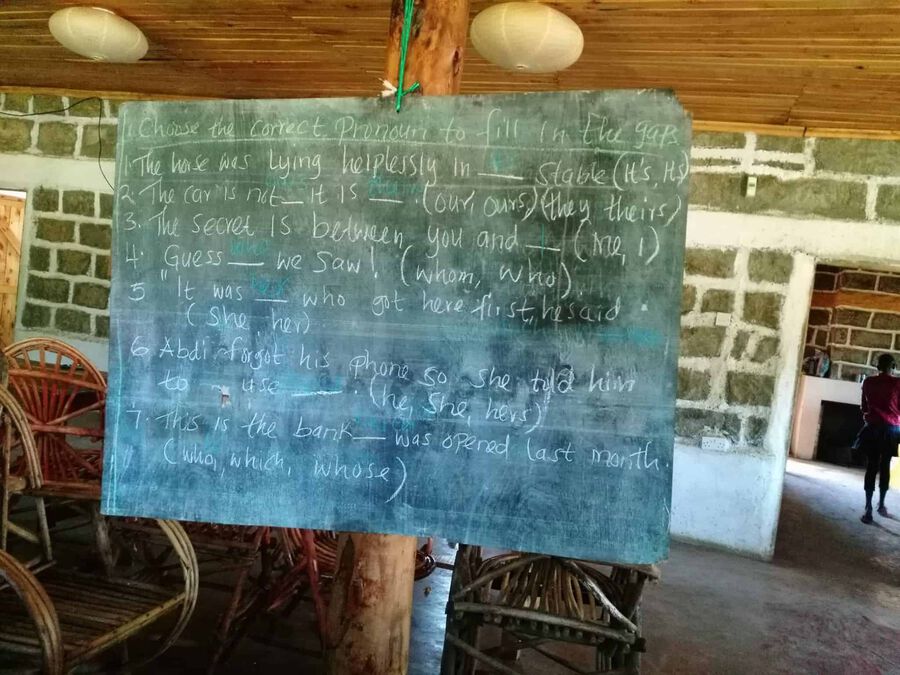 1. Choose the correct Pronoun to fill in the gaps
1. The horse was lying helplessly in ___ stable (it's, its)
2. The car is not __ it is ___. (our, ours) (they theirs)
3. The secret is between you and I (me, I)
4. "Guess who we saw! (whom, who).
5 "It was ___ who got here first, he said.
(She, her)
6 Abdi forgot his phone so she told him
to use ___. (he, she, hers)
7. This is the bank __ was opened last month.
(who, which, whose)